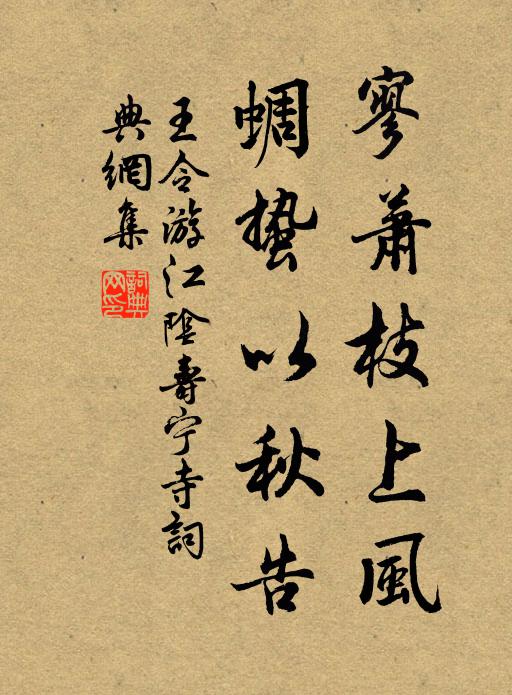 寥蕭枝上風
蜩蛰以秋告
王令游江陰壽宁寺詞
典網集
詞典
网印